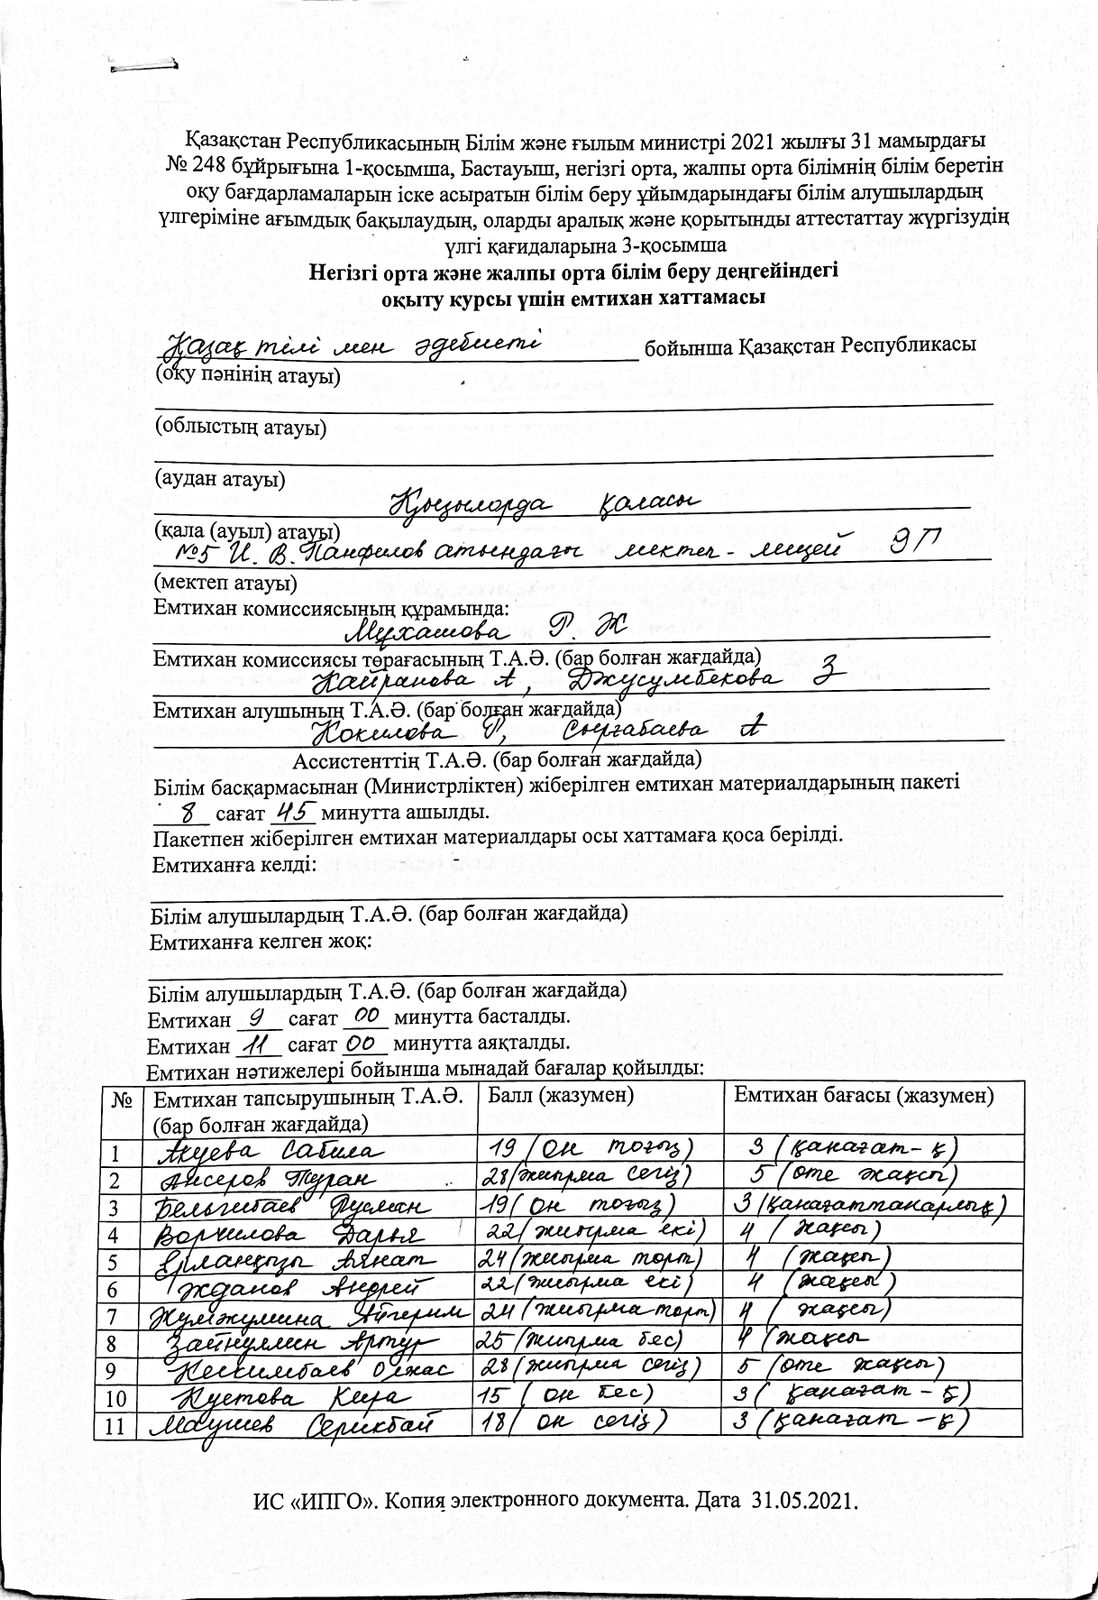 Қазақстан Республикасының Білім және ғылым министрі 2021 жылғы 31 мамырдағы
№ 248 бұйрығына 1-қосымша, Бастауыш, негізгі орта, жалпы орта білімнің білім беретін
оқу бағдарламаларын іске асыратын білім беру ұйымдарындағы білім алушылардың
үлгеріміне ағымдық бақылаудың, оларды аралық және қорытынды аттестаттау жүргізудің
үлгі қағидаларына 3-қосымша
Негізгі орта және жалпы орта білім беру деңгейіндегі
оқыту курсы үшін емтихан хаттамасы
Қазақ тілі мен әдебиеті бойынша Қазақстан Республикасы
(оқу пәнінің атауы)
(облыстың атауы)
(аудан атауы)
Қызылорда қаласы
(қала (ауыл) атауы)
№5 И. В. Панфилов атындағы мектеп - лицей 9П
(мектеп атауы)
Емтихан комиссиясының құрамында:
Мұхашова Р. Ж
Емтихан комиссиясы төрағасының Т.А.Ә. (бар болған жағдайда)
Кайранова А, Джусумбекова З
Емтихан алушының Т.А.Ә. (бар болған жағдайда)
Кокилова Р, Сырғабаева А
Ассистенттің Т.А.Ә. (бар болған жағдайда)
Білім басқармасынан (Министрліктен) жіберілген емтихан материалдарының пакеті
8 сағат 45 минутта ашылды.
Пакетпен жіберілген емтихан материалдары осы хаттамаға қоса берілді.
Емтиханға келді:
Білім алушылардың Т.А.Ә. (бар болған жағдайда)
Емтиханға келген жоқ:
Білім алушылардың Т.А.Ә. (бар болған жағдайда)
Емтихан 9 сағат 00 минутта басталды.
Емтихан 11 сағат 00 минутта аяқталды.
Емтихан нәтижелері бойынша мынадай бағалар қойылды:
№ Емтихан тапсырушының Т.А.Ә. Балл (жазумен) Емтихан бағасы (жазумен)
(бар болған жағдайда)
1 Акуева Сабила 19 (он тоғыз) 3 (қанағат-қ)
2 Ансеров Туран 28 (жиырма сегіз) 5 (өте жақсы)
3 Бельгибаев Руслан 19 (он тоғыз) 3 (қанағаттанарлық)
4 Ворчилова Дарья 22 (жиырма екі) 4 (жақсы)
5 Ерланқызы Аянат 24 (жиырма төрт) 4 (жақсы)
6 Жданов Андрей 22 (жиырма екі) 4 (жақсы)
7 Жумжумина Айгерим 24 (жиырма төрт) 4 (жақсы)
8 Зайнуллин Артур 25 (жиырма бес) 4 (жақсы
9 Келимбаев Олжас 28 (жиырма сегіз) 5 (өте жақсы)
10 Кустова Кира 15 (он бес) 3 (қанағат - қ)
11 Маушев Серикбай 18 (он сегіз) 3 (қанағат - қ)
ИС «ИПГО». Копия электронного документа. Дата 31.05.2021.